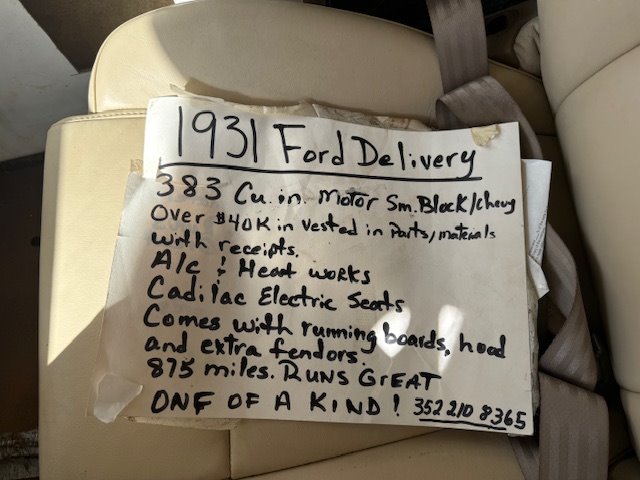 1931 Ford Delivery
383 Cu. in. Motor Sm. Block/chevy
Over $40K in vested in Parts/materials
with receipts.
A/c & Heat works
Cadilac Electric Seats
Comes with running boards, hood
and extra fendors.
875 miles. RUNS GREAT
ONE OF A KIND! 352 210 8365